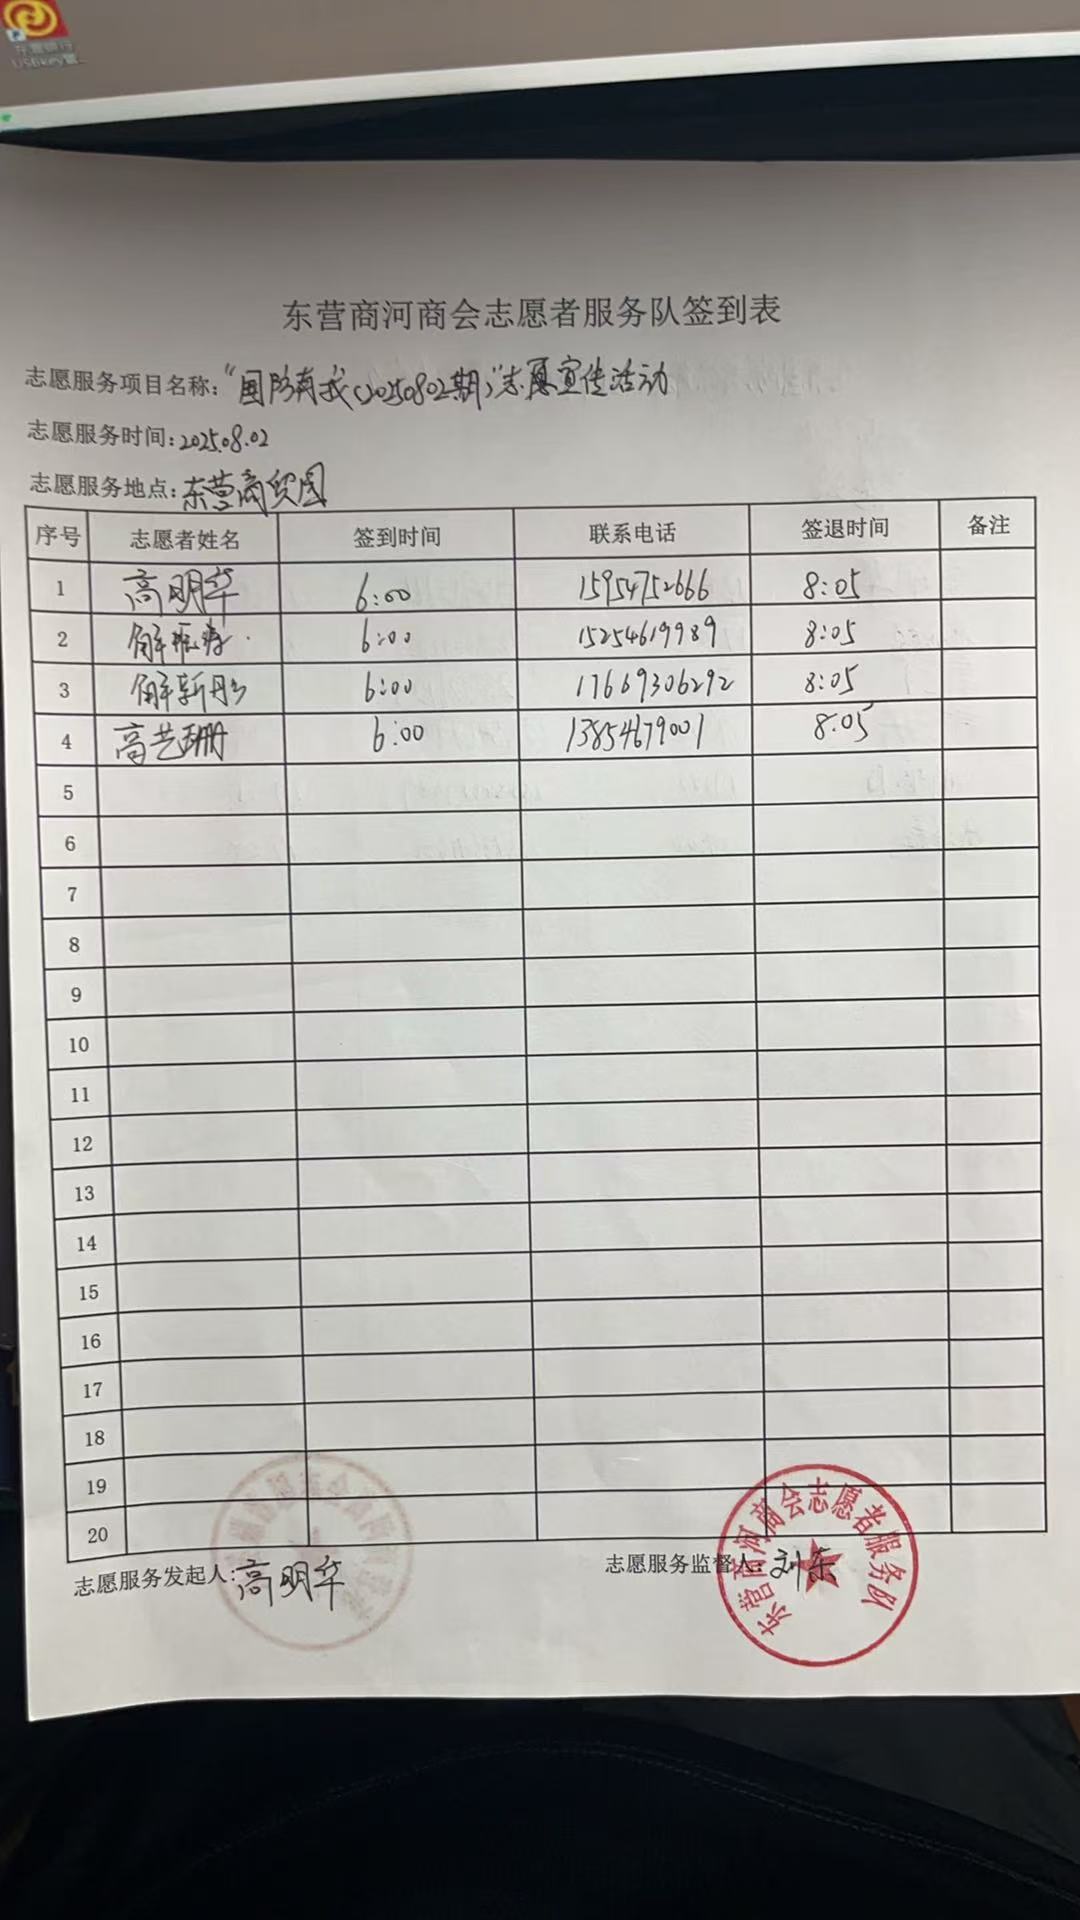 东营银行
USBkey管...
东营商河商会志愿者服务队签到表
志愿服务项目名称:“国防有我(20250802期)”志愿宣传活动
志愿服务时间:2025.08.02
志愿服务地点:东营商贸园
序号 志愿者姓名 签到时间 联系电话 签退时间 备注
1 高明华 6:00 15954752666 8:05
2 解 6:00 15254619989 8:05
3 解新彤 6:00 17669306292 8:05
4 高艺珊 6:00 13854679001 8:05
5
6
7
8
9
10
11
12
13
14
15
16
17
18
19
20
志愿服务发起人:高明华 志愿服务监督人:刘东
东营商河商会志愿者服务队